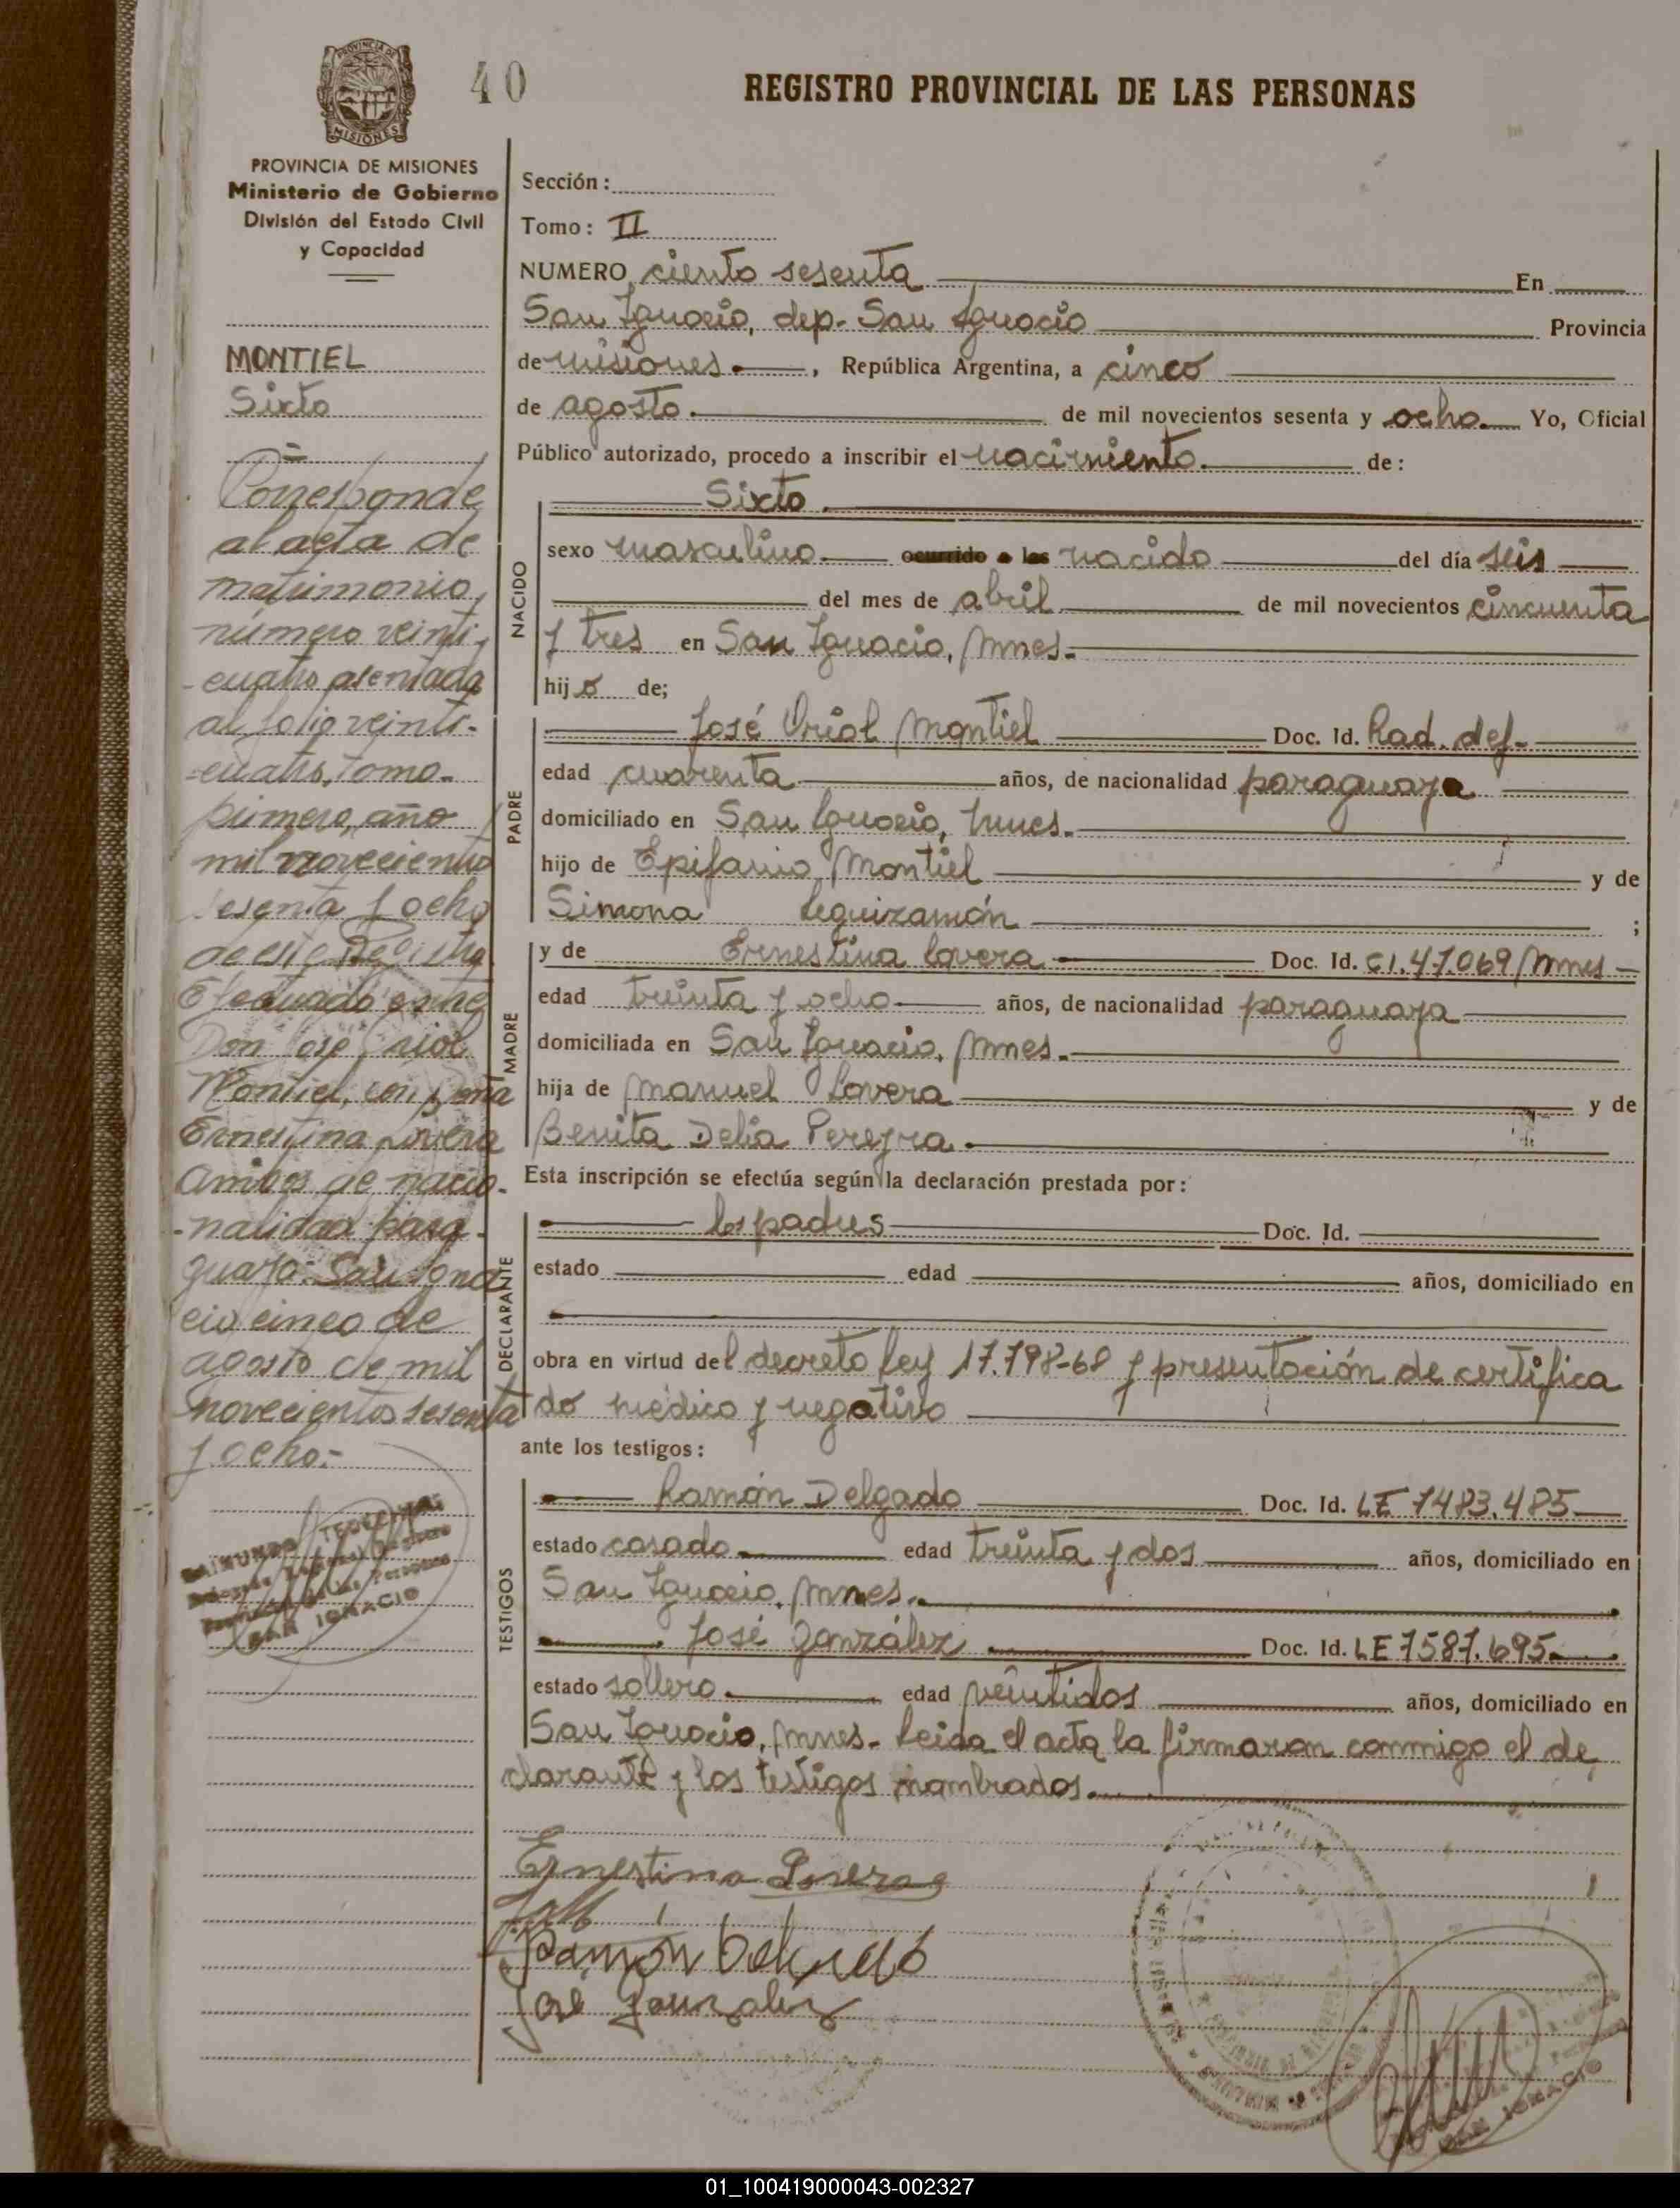 40
REGISTRO PROVINCIAL DE LAS PERSONAS
PROVINCIA DE MISIONES
PROVINCIA DE MISIONES
Ministerio de Gobierno
División del Estado Civil
y Capacidad
MONTIEL
Sixto
Corresponde
al acta de
matrimonio,
número veinti-
-cuatro asentada
al folio veinti-
-cuatro, tomo-
primero, año
mil novecientos
sesenta y ocho
de este Registro
Efectuado entre
Don José Oriol
Montiel, con Doña
Ernestina Lovera
Ambos de nacio-
-nalidad para-
guaya: San Igna
cio cinco de
agosto de mil
novecientos sesenta
y ocho.-
SAN IGNACIO
Sección:
Tomo: II
NUMERO ciento sesenta En
San Ignacio, dep. San Ignacio Provincia
de misiones. , República Argentina, a cinco
de agosto. de mil novecientos sesenta y ocho. Yo, Oficial
Público autorizado, procedo a inscribir el nacimiento. de:
NACIDO
Sixto.
sexo masculino. ocurrido a las nacido del día seis
del mes de abril de mil novecientos cincuenta
y tres en San Ignacio, Mnes.
hijo de;
PADRE
José Oriol Montiel Doc. Id. Rad. def.
edad cuarenta años, de nacionalidad paraguaya
domiciliado en San Ignacio, Mnes.
hijo de Epifanio Montiel y de
Simona Leguizamón ;
MADRE
y de Ernestina Lovera Doc. Id. CI.47.069/Mnes
edad treinta y ocho años, de nacionalidad paraguaya
domiciliada en San Ignacio, Mnes.
hija de Manuel Lovera y de
Benita Delia Pereyra.
Esta inscripción se efectúa según la declaración prestada por:
DECLARANTE
los padres Doc. Id.
estado edad años, domiciliado en
obra en virtud del decreto ley 17.798-68 y presentación de certifica
do médico y negativo
ante los testigos:
TESTIGOS
Ramón Delgado Doc. Id. LE 7483.485
estado casado. edad treinta y dos años, domiciliado en
San Ignacio, Mnes.
José González Doc. Id. LE 7587.695.
estado soltero. edad veintidos años, domiciliado en
San Ignacio, Mnes- Leida el acta la firmaron conmigo el de
clarante y los testigos nombrados.
Ernestina Lovera
Ramón Delgado
José Gonzalez
SAN IGNACIO
01_100419000043-002327